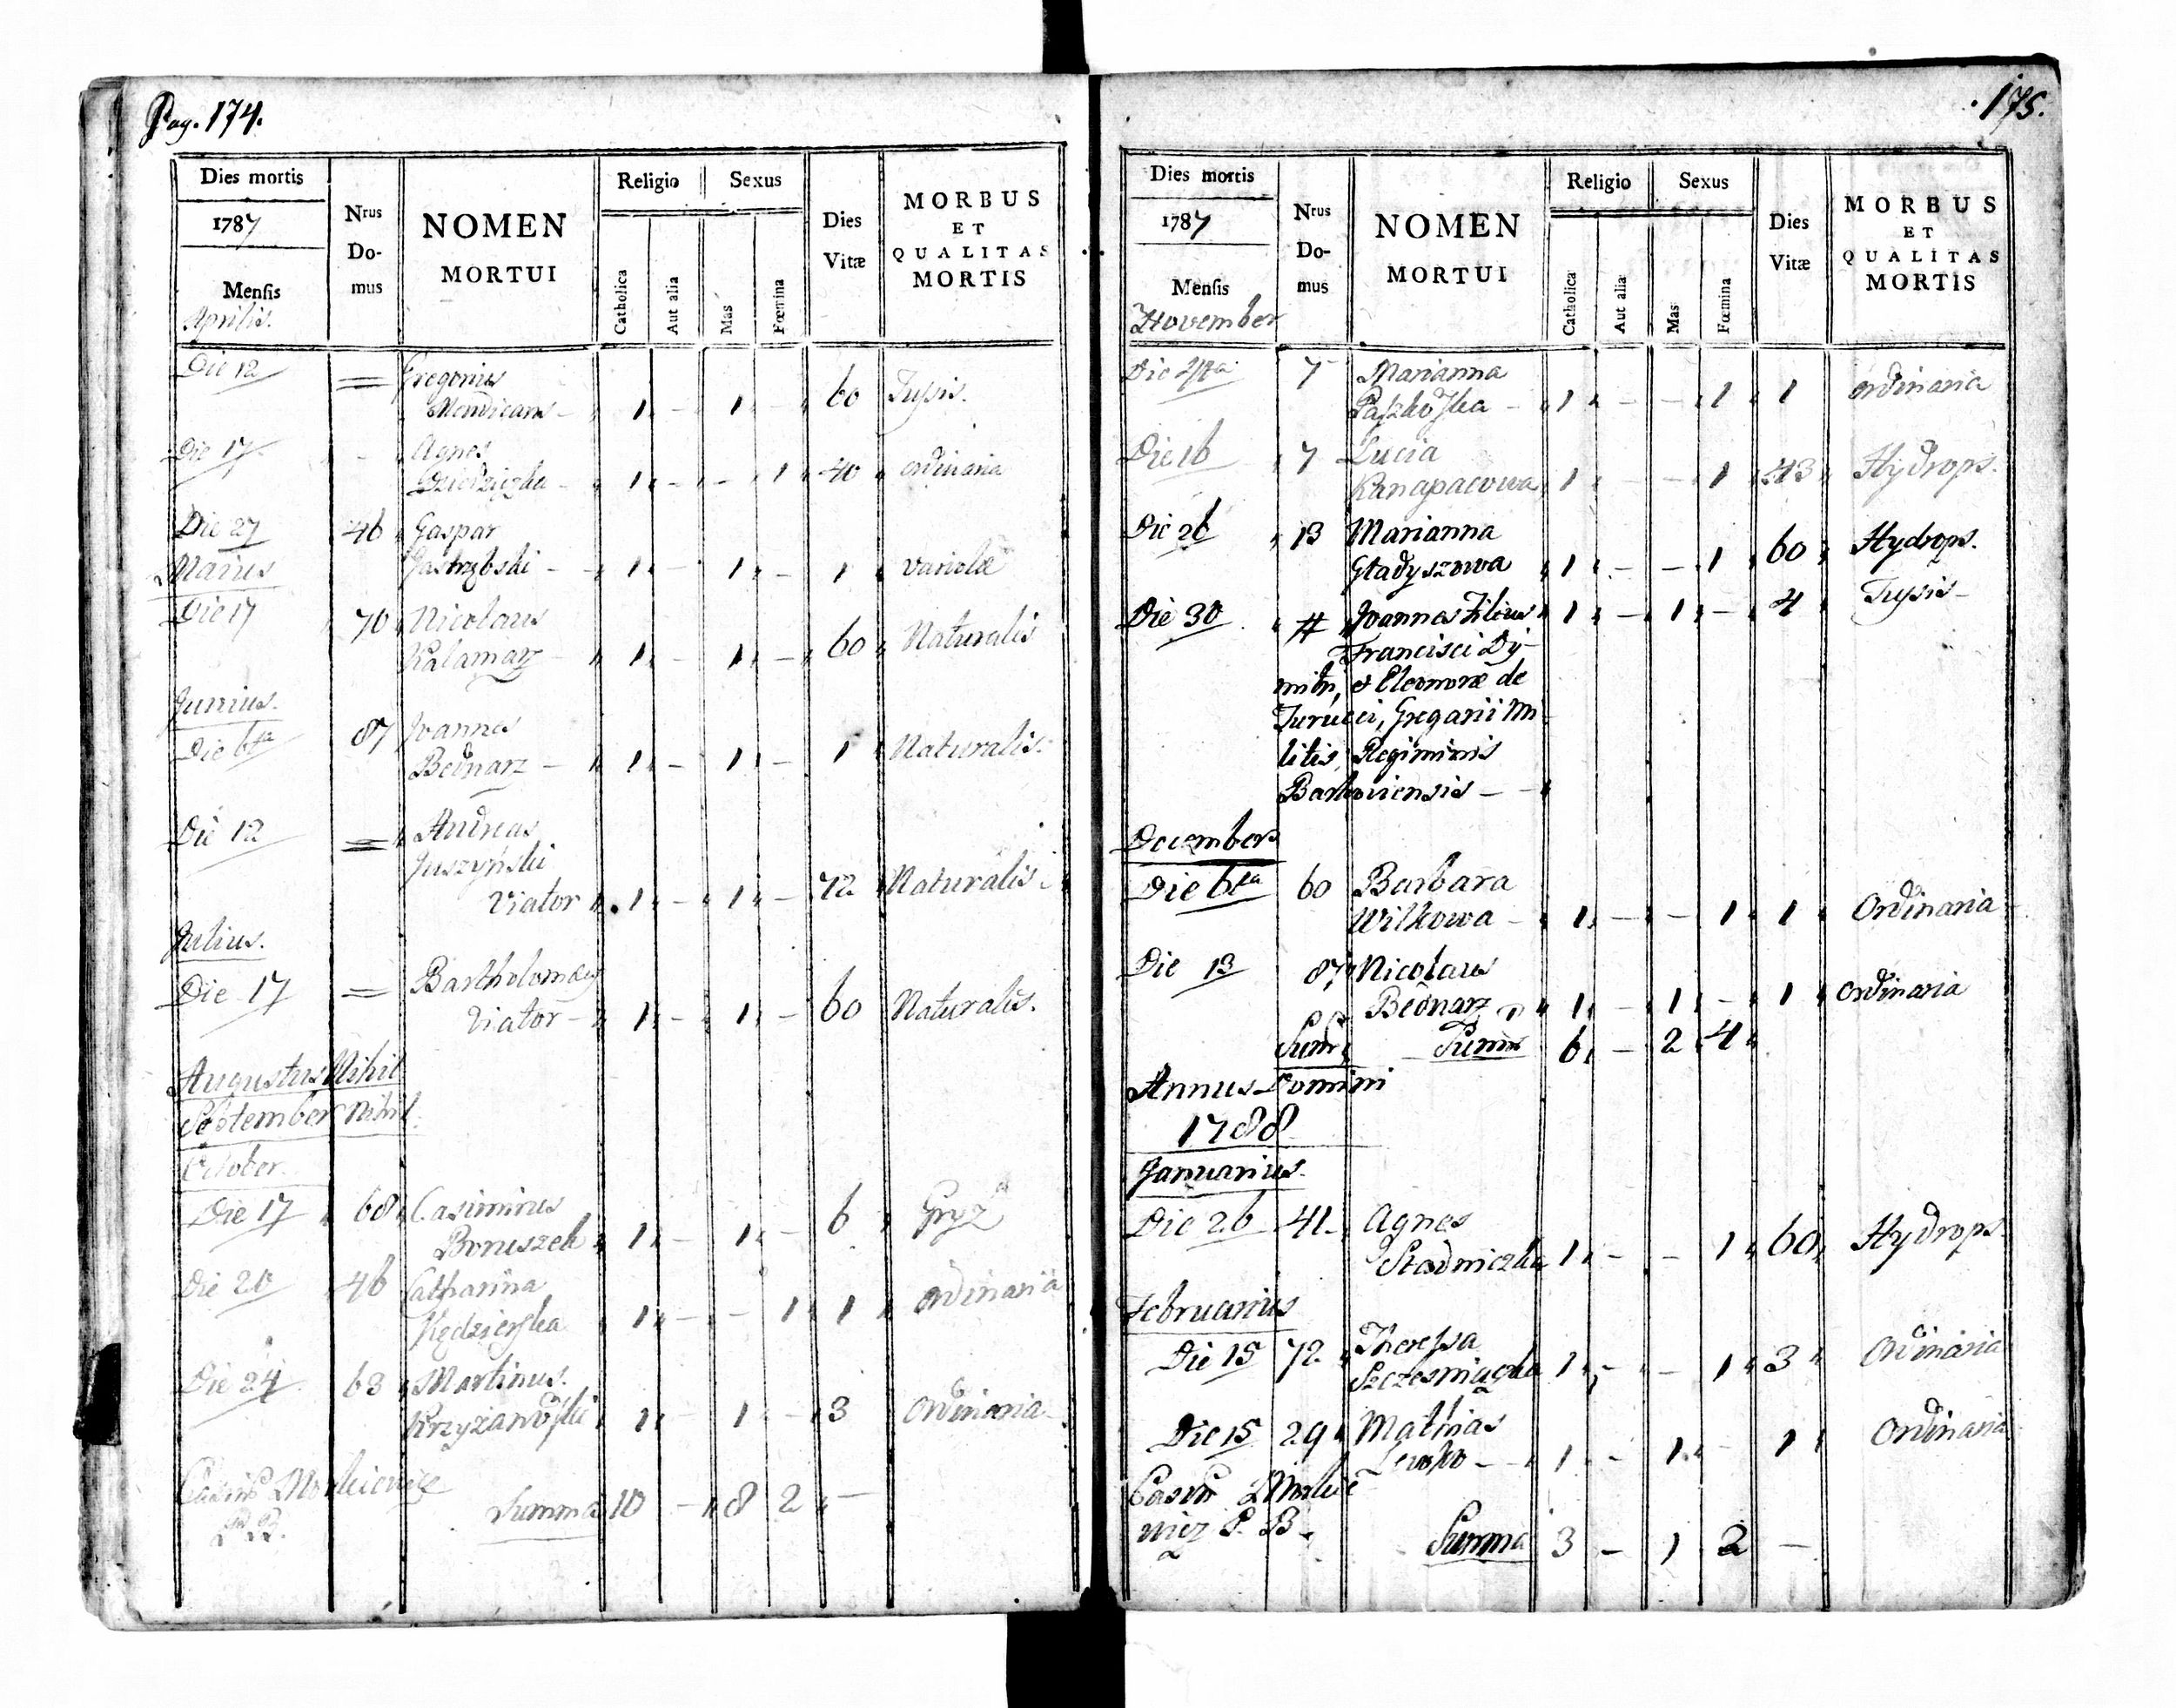 Pag. 174.
Dies mortis
1787
Mensis
Aprilis.
Nrus
Do-
mus
NOMEN
MORTUI
Religio
Catholica
Aut alia
Sexus
Mas
Fœmina
Dies
Vitæ
MORBUS
ET
QUALITAS
MORTIS
Die 12 = Gregorius
Mendicans - 1 - 1 - 60 Tysis.
Die 17 - Agnes
1 - - 1 40 ordinaria
Die 27 46 Gaspar
Jastrzbski - 1 - 1 - 1 variolæ
Maius
Die 17 70 Nicolaus
Kalamarz 1 - 1 - 60 Naturalis
Junius.
Die 6ta 87 Joannes
Bednarz - 1 - 1 - 1 Naturalis.
Die 12 = Andreas
Juszyński
Viator 1 - 1 - 72 Naturalis.
Julius.
Die 17 = Bartholomæus
Viator - 1 - 1 - 60 Naturalis.
Augustus Nihil
September Nihil.
October.
Die 17 68 Casimirus
Boruszek 1 - 1 - 6 Gryz
Die 20 46 Catharina
Kędzierska 1 - - 1 1 ordinaria
Die 24 63 Martinus.
Krzyżanowski 1 - 1 - 3 Ordinaria
P. B. Summa 10 - 8 2 -
175.
Dies mortis
1787
Mensis
November
Nrus
Do-
mus
NOMEN
MORTUI
Religio
Catholica
Aut alia
Sexus
Mas
Fœmina
Dies
Vitæ
MORBUS
ET
QUALITAS
MORTIS
Die 4ta 7 Marianna
Paszkowska - 1 - - 1 1 ordinaria
Die 16 7 Lucia
Kanapacowa 1 - 1 43 Hydrops.
Die 26 13 Marianna
Gładyszowa 1 - - 1 60 Hydrops.
Die 30 # Joannes Filius 1 - 1 - 4 Tysis -
Francisci Dy-
mitr, et Eleonoræ de
Turucci, Gregarii Mi-
litis, Regiminis
- -
December
Die 6ta 60 Barbara
Wilkowa - 1 - - 1 1 Ordinaria
Die 13 87 Nicolaus
Bednarz 1 - 1 - 1 ordinaria
Sum Summ 6 - 2 4
Annus Domini
1788
Januarius.
Die 26 41 Agnes
Stadniczka 1 - - 1 60 Hydrops
Februarius
Die 15 72 Theressa
1 - - 1 3 Ordinaria
Die 15 29 Mathias
1 - 1 - 1 Ordinaria
P. B. Summa 3 - 1 2 -